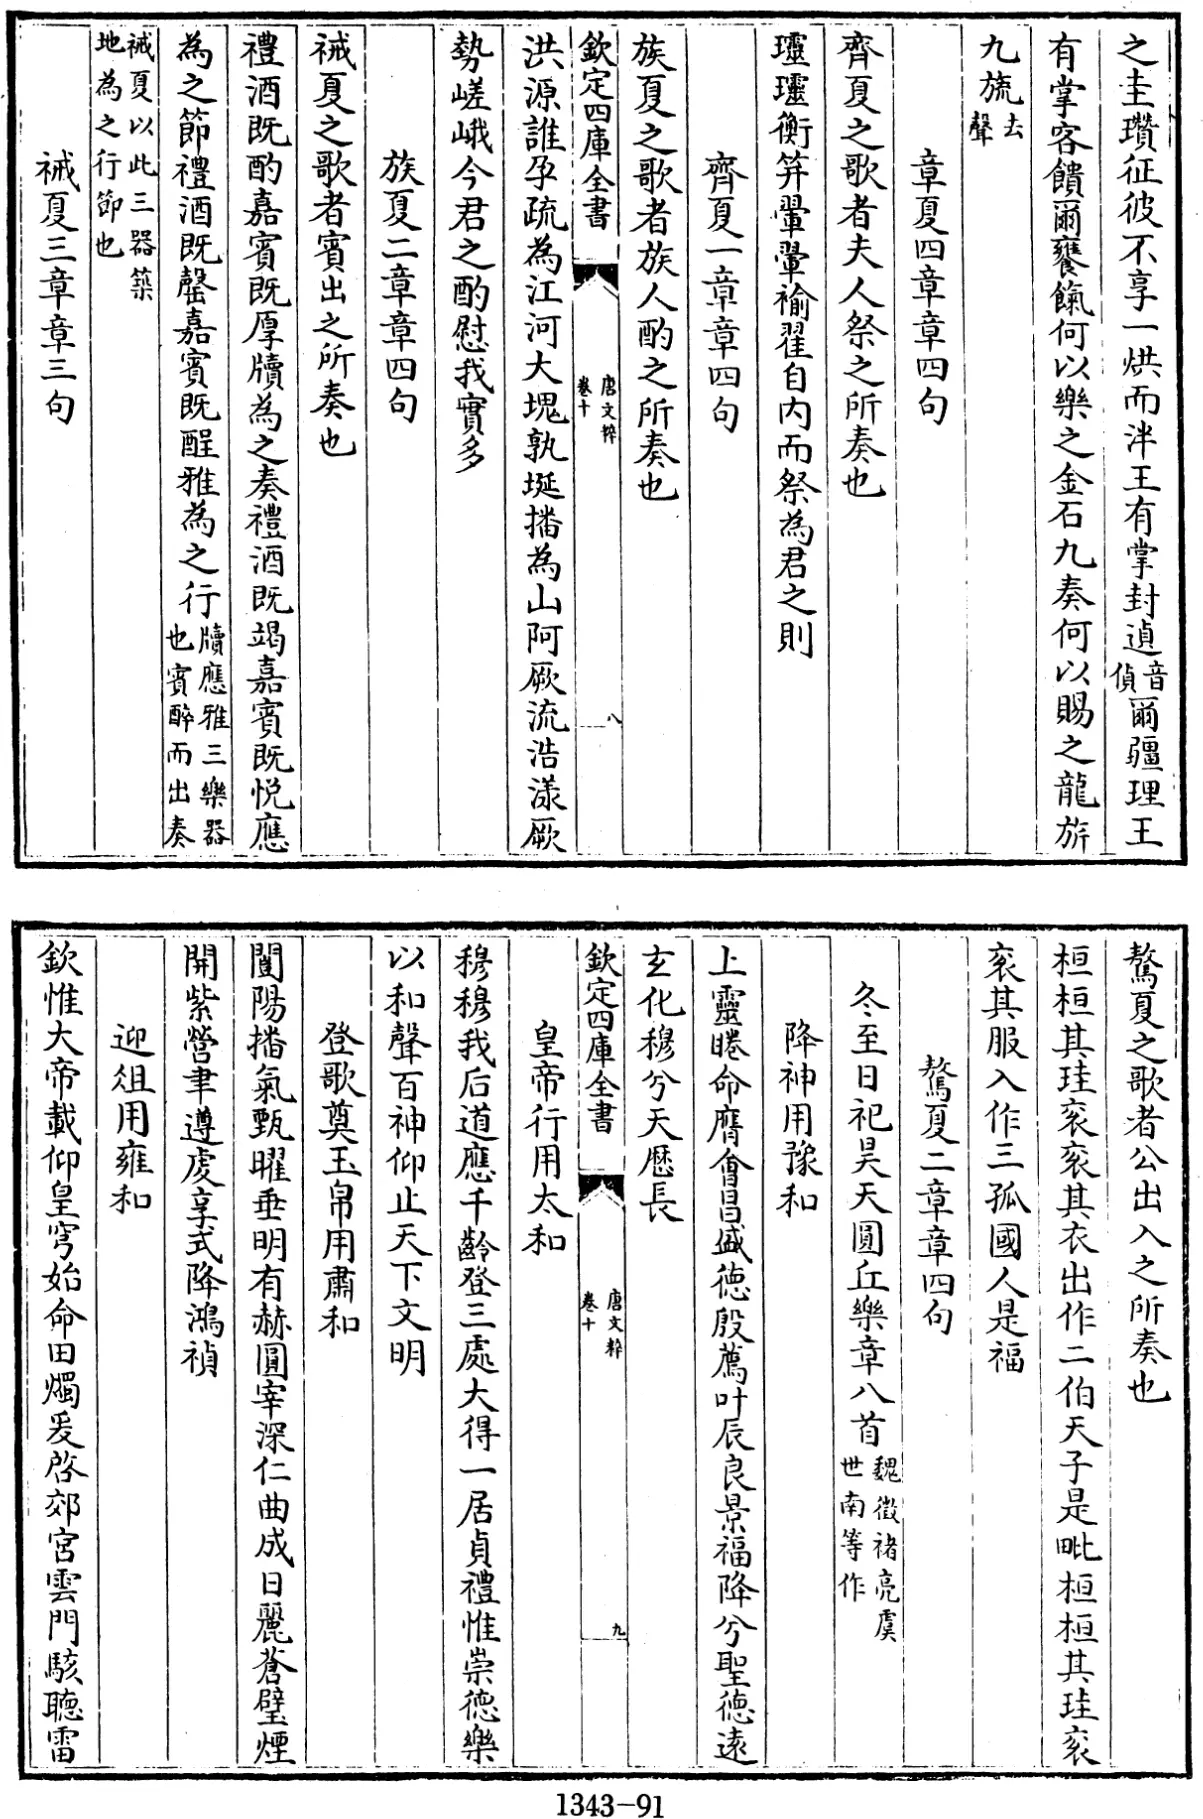 之圭瓚征彼不享一烘而泮王有掌封遉音偵爾疆理王
有掌客饋爾饔餼何以樂之金石九奏何以賜之龍旂
九旒去聲
章夏四章章四句
齊夏之歌者夫人祭之所奏也
璱璱衡笄翬翬褕翟自内而祭為君之則
齊夏一章章四句
族夏之歌者族人酌之所奏也
欽定四庫全書
唐文粹
卷十
八
洪源誰孕疏為江河大塊孰埏播為山阿厥流浩漾厥
勢嵯峨今君之酌慰我實多
族夏二章章四句
祴夏之歌者賓出之所奏也
禮酒既酌嘉賓既厚牘為之奏禮酒既竭嘉賓既悦應
為之節禮酒既罄嘉賓既酲雅為之行牘應雅三樂器也賓醉而出奏
祴夏以此三器築地為之行節也
祴夏三章章三句
驁夏之歌者公出入之所奏也
桓桓其珪衮衮其衣出作二伯天子是毗桓桓其珪衮
衮其服入作三孤國人是福
驁夏二章章四句
冬至日祀昊天圓丘樂章八首魏徴褚亮虞世南等作
降神用豫和
上靈睠命膺會昌盛德殷薦叶辰良景福降兮聖德遠
玄化穆兮天厯長
欽定四庫全書
唐文粹
卷十
九
皇帝行用太和
穆穆我后道應千齡登三處大得一居貞禮惟崇德樂
以和聲百神仰止天下文明
登歌奠玉帛用肅和
闓陽播氣甄曜垂明有赫圓宰深仁曲成日麗蒼璧煙
開紫營聿遵虔享式降鴻禎
迎俎用雍和
欽惟大帝載仰皇穹始命田燭爰啓郊宮雲門駭聽雷
1343-91